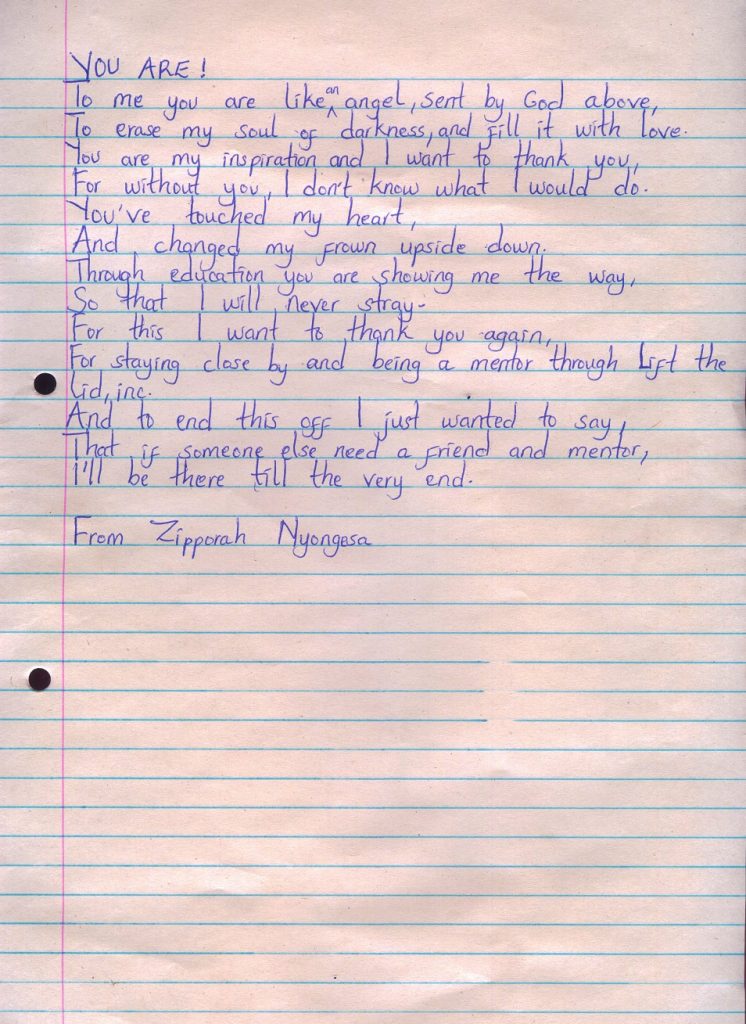 YOU ARE!
To me you are like an angel, sent by God above,
To erase my soul of darkness, and fill it with love.
You are my inspiration and I want to thank you,
For without you, I don't know what I would do.
You've touched my heart,
And changed my frown upside down.
Through education you are showing me the way,
So that I will never stray-
For this I want to thank you again,
For staying close by and being a mentor through Lift the
Lid, inc.
And to end this off I just wanted to say,
That if someone else need a friend and mentor,
I'll be there till the very end.
From Zipporah Nyongesa